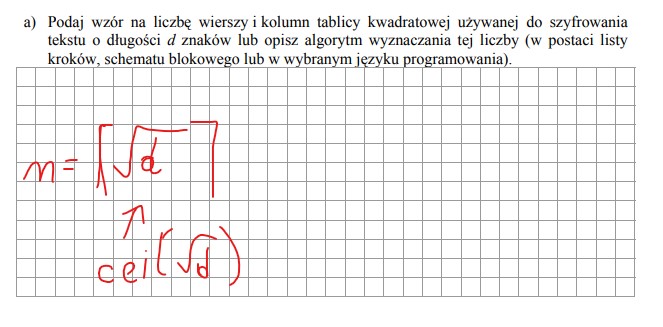 a) Podaj wzór na liczbę wierszy i kolumn tablicy kwadratowej używanej do szyfrowania
tekstu o długości d znaków lub opisz algorytm wyznaczania tej liczby (w postaci listy
kroków, schematu blokowego lub w wybranym języku programowania).
m = ⌈√d⌉
↑
ceil(√d)